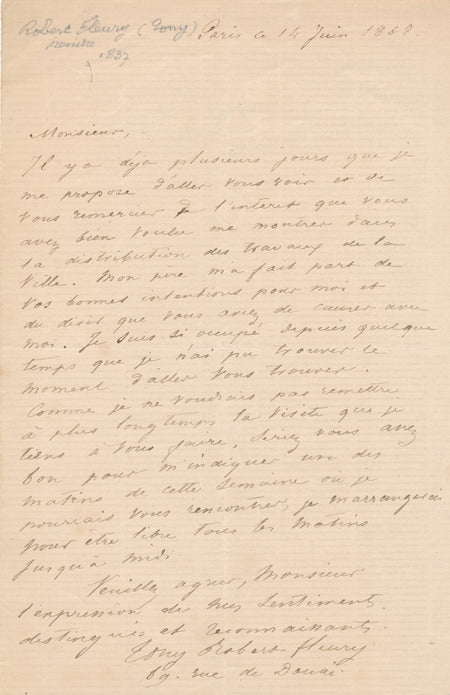 Robert Fleury (Tony)
peintre
1837
Paris ce 14 Juin 1868.
Monsieur,
Il y a déja plusieurs jours que je
me propose d'aller vous voir et de
vous remercier de l'interêt que vous
avez bien voulu me montrer dans
la distribution des travaux de la
Ville. Mon père m'a fait part de
vos bonnes intentions pour moi et
du désir que vous avez de causer avec
moi. Je suis si occupé depuis quelque
temps que je n'ai pu trouver le
moment d'aller vous trouver.
Comme je ne voudrais pas remettre
à plus longtemps la visite que je
tiens à vous faire, seriez vous assez
bon pour m'indiquer un des
matins de cette semaine où je
pourrais vous rencontrer, je m'arrangerais
pour être libre tous les matins
jusqu'à midi.
Veuillez agréer, Monsieur
l'expression de mes sentiments
distingués et reconnaissants.
Tony Robert-Fleury
69. rue de Douai.